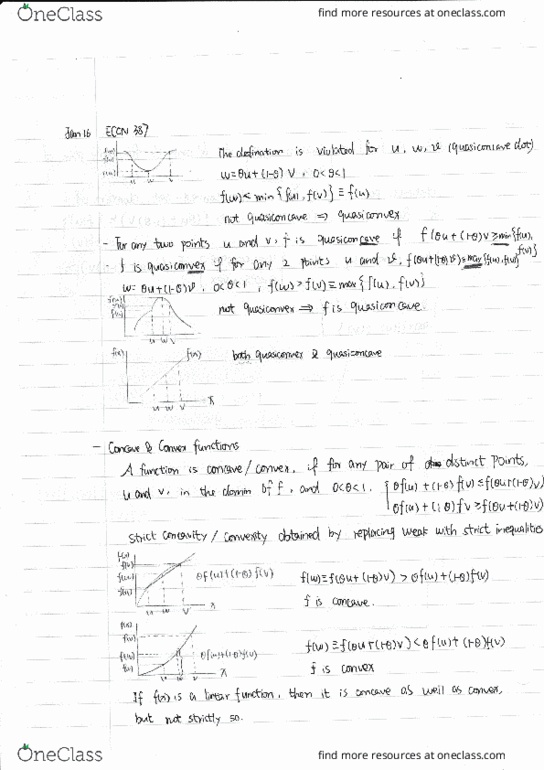 OneClass
find more resources at oneclass.com
Jan 16 ECON 387
The defination is violated for u, w, v (quasiconcave def)
w=θu+(1-θ)V, 0<θ<1
f(w)<min{f(u), f(v)} ≡ f(u)
not quasiconcave ⇒ quasiconvex
- For any two points u and v, f is quasiconcave if f(θu+(1-θ)v ≥ min{f(u), f(v)}
- f is quasiconvex if for any 2 points u and v, f(θu+(1-θ)v) ≤ max{f(u), f(v)}
w= θu+(1-θ)v, 0<θ<1, f(w)>f(v)=max{f(u), f(v)}
not quasiconvex ⇒ f is quasiconcave.
u w v
f(x) f(x) both quasiconvex & quasiconcave
u w v x
- Concave & Convex functions
A function is concave/convex, if for any pair of distinct points,
u and v, in the domin of f, and 0<θ<1. { θf(u)+(1-θ)f(v) ≤ f(θu+(1-θ)v)
θf(u)+(1-θ)fv ≥ f(θu+(1-θ)v)
Strict concavity / convexity obtained by replacing weak with strict inequalities
f(x)
f(v) θf(u)+(1-θ)f(v) f(w)≡f(θu+(1-θ)v) > θf(u)+(1-θ)f(v)
f(w)
f(u) f is concave.
u w v x
f(x)
f(v) f(w)≡f(θu+(1-θ)v)<θf(u)+(1-θ)f(v)
θf(u)+(1-θ)f(v)
f(w)
f(u) f is convex
u w v x
If f(x) is a linear function, then it is concave as well as convex,
but not strictly so.
OneClass
find more resources at oneclass.com